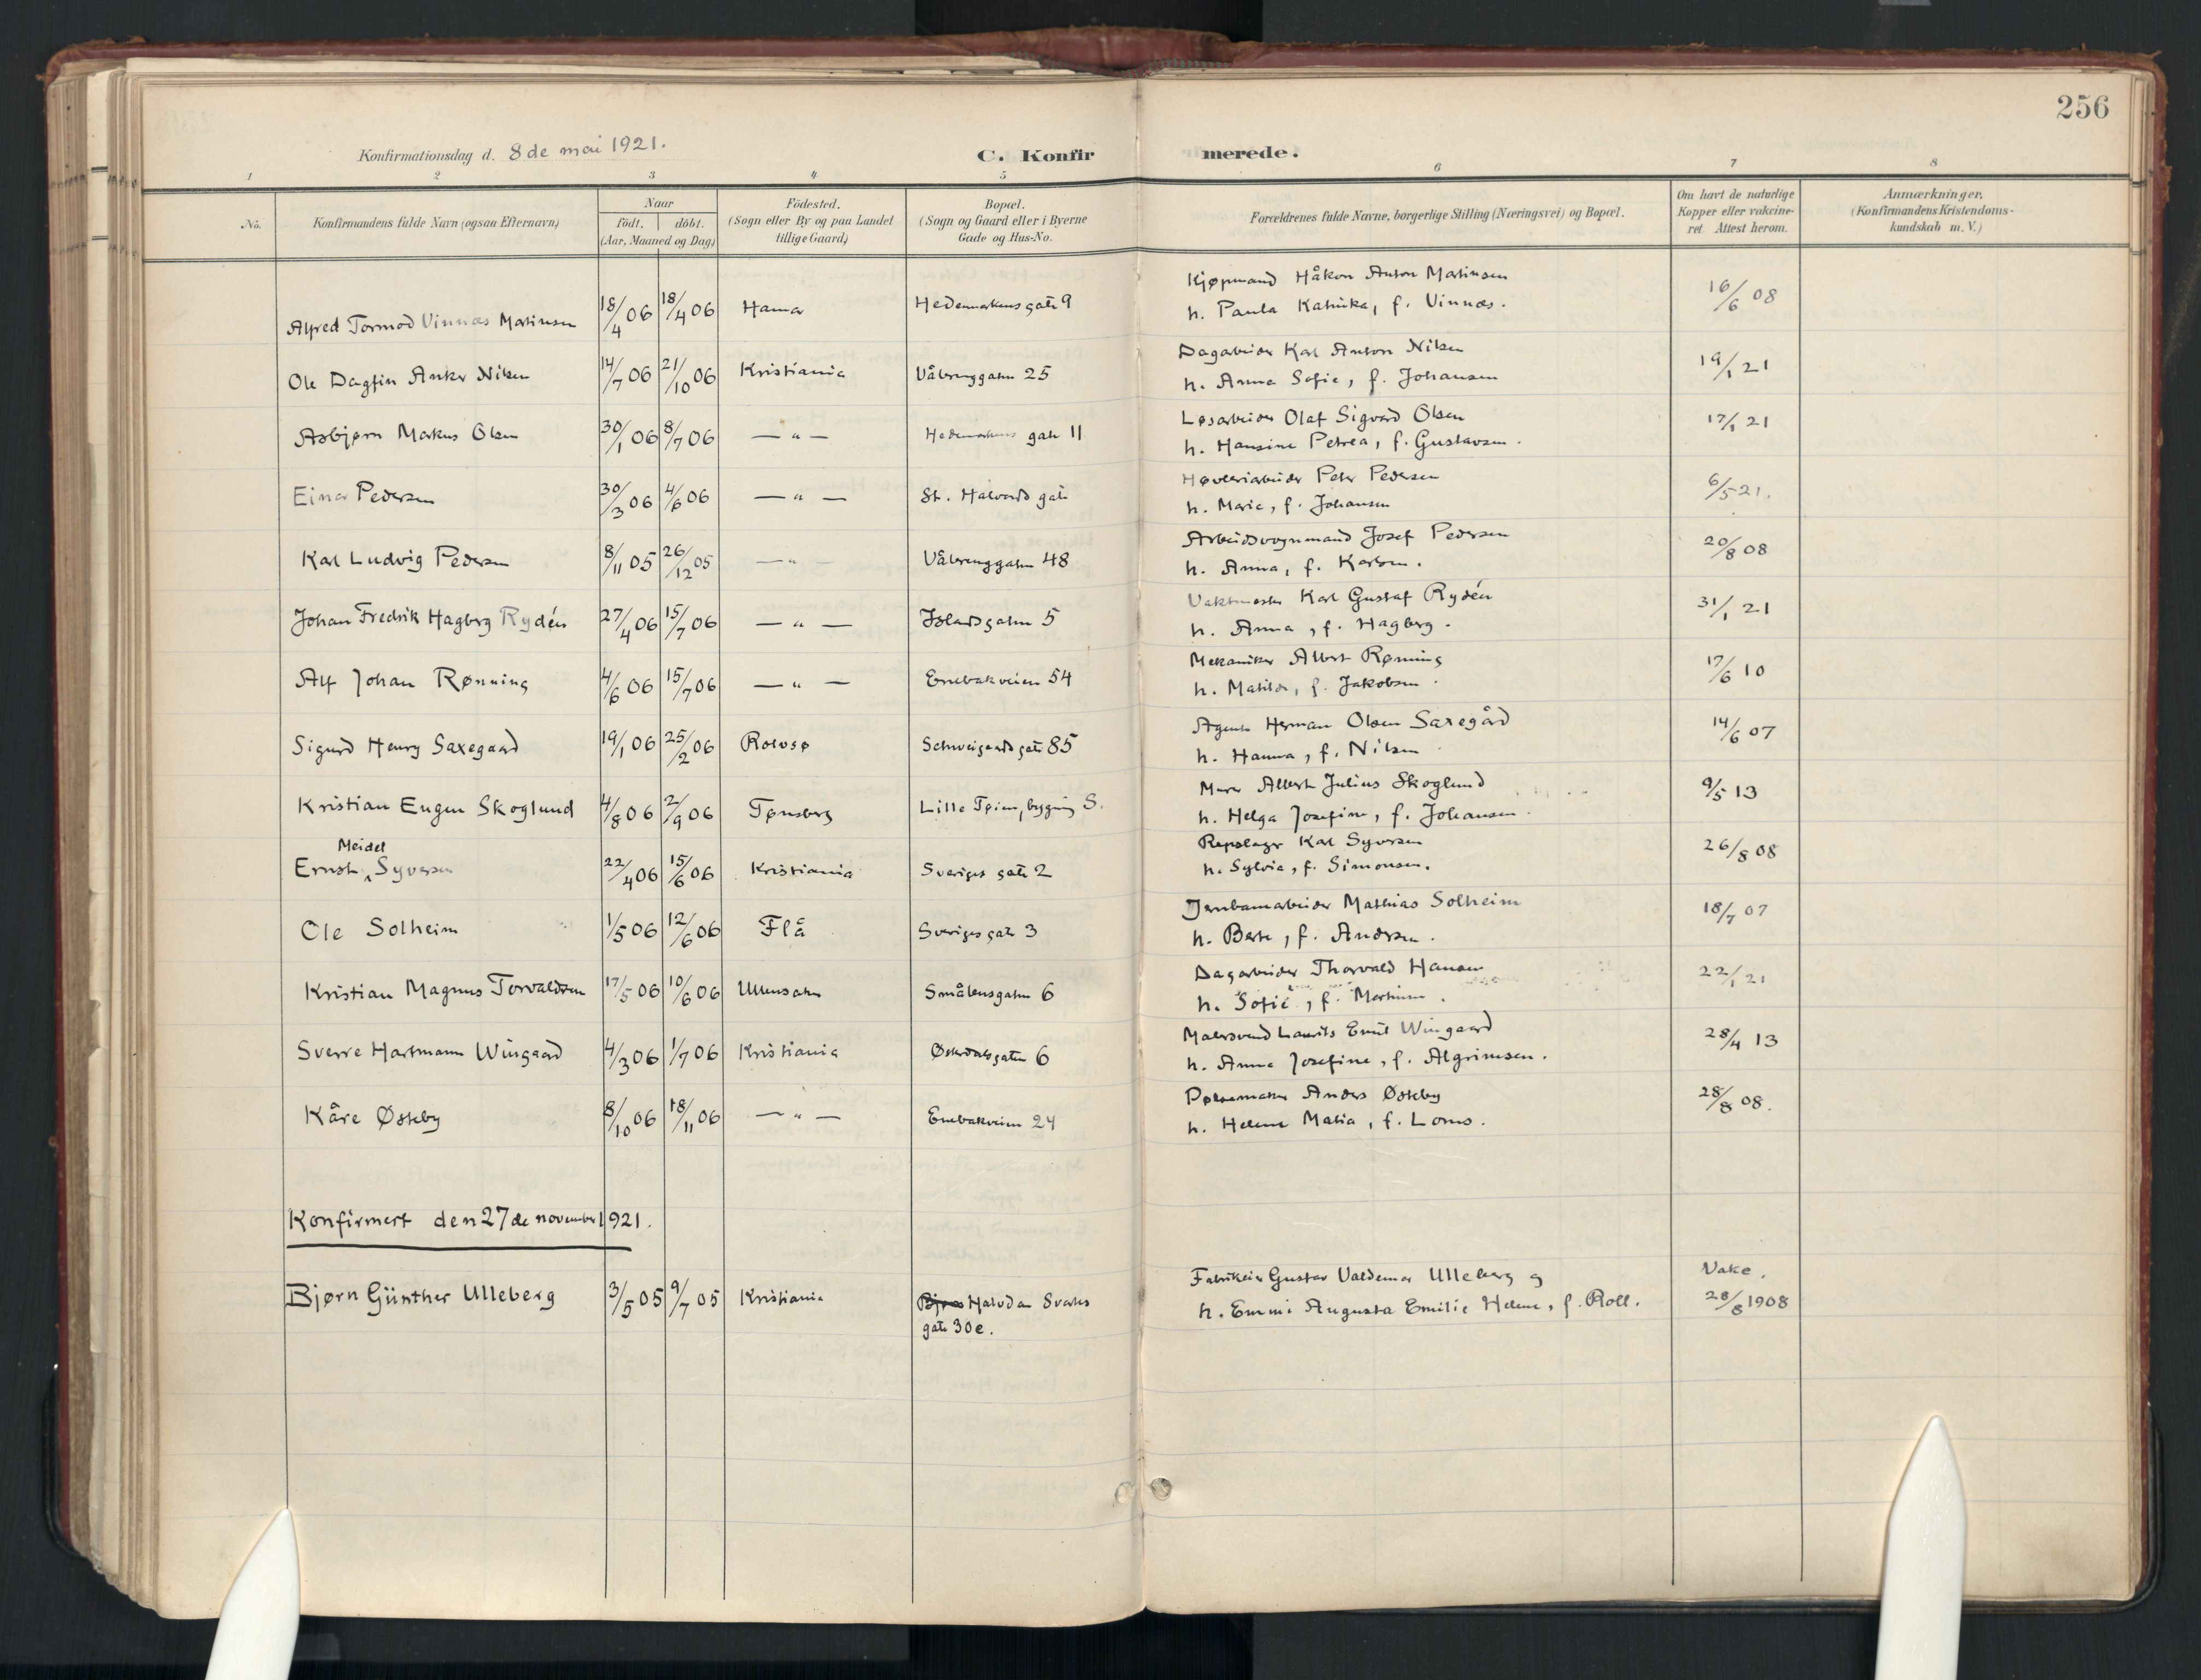 256
Konfirmationsdag d. 8de mai 1921.
C. Konfirmerede.
1 2 3 4 5 6 7 8
No.
Konfirmandens fulde Navn (ogsaa Efternavn)
Naar
födt. döbt.
(Aar, Maaned og Dag)
Födested.
(Sogn eller By og paa Landet
tillige Gaard)
Bopæl.
(Sogn og Gaard eller i Byerne
Gade og Hus-No.
Forældrenes fulde Navne, borgerlige Stilling (Næringsvei) og Bopæl.
Om havt de naturlige
Kopper eller vakcine-
ret. Attest herom.
Anmærkninger,
(Konfirmandens Kristendoms-
kundskab m. V.)
Alfred Tormod Vinnæs Martinsen 18/4 06 18/4 06 Hamar Hedemarkens gate 9
Kjøpmand Håkon Anton Martinsen
h. Paula Katinka, f. Vinnæs. 16/6 08
Ole Dagfin Anker Nilsen 14/7 06 21/10 06 Kristiania Vålerenggaten 25
Dagarbeider Karl Anton Nilsen
h. Anna Sofie, f. Johansen 19/1 21
Asbjørn Markus Olsen 30/1 06 8/7 06 — " — Hedemarkens gate 11
Løsarbeider Olaf Sigvard Olsen
h. Hansine Petrea, f. Gustavsen. 17/1 21
Einar Pedersen 30/3 06 4/6 06 — " — St. Halvards gate
Høvleriarbeider Peter Pedersen
h. Marie, f. Johansen 6/5 21.
Karl Ludvig Pedersen 8/11 05 26/12 05 — " — Vålerenggaten 48
Arbeidsvognmand Josef Pedersen
h. Anna, f. Karlsen. 20/8 08
Johan Fredrik Hagberg Rydén 27/4 06 15/7 06 — " — Islandsgaten 5
Vaktmester Karl Gustaf Rydén
h. Anna, f. Hagberg. 31/1 21
Alf Johan Rønning 4/6 06 15/7 06 — " — Enebakveien 54
Mekaniker Albert Rønning
h. Matilde, f. Jakobsen. 17/6 10
Sigurd Henry Saxegaard 19/1 06 25/2 06 Rolvsø Schweigaards gate 85
Agent Herman Olsen Saxegård
h. Hanna, f. Nilsen 14/6 07
Kristian Eugen Skoglund 4/8 06 2/9 06 Tønsberg Lille Tøien, bygning S.
Murer Albert Julius Skoglund
h. Helga Josefine, f. Johansen. 9/5 13
Meidel
Ernst ^ Syversen 22/4 06 15/6 06 Kristiania Sveriges gate 2
Repslager Karl Syversen
h. Sylvia, f. Simonsen. 26/8 08
Ole Solheim 1/5 06 12/6 06 Flå Sveriges gate 3
Jernbanearbeider Mathias Solheim
h. Berte, f. Andersen. 18/7 07
Kristian Magnus Torvaldsen 17/5 06 10/6 06 Ullensaker Smålensgaten 6
Dagarbeider Thorvald Hansen
h. Sofie, f. Martinsen. 22/1 21
Sverre Hartmann Wingaard 4/3 06 1/7 06 Kristiania Østerdalsgaten 6
Malersvend Laurits Emil Wingaard
h. Anna Josefine, f. Algrimsen. 28/4 13
Kåre Østeby 8/10 06 18/11 06 — " — Enebakveien 24
Pølsemaker Anders Østeby
h. Helene Matia, f. Loms. 28/8 08.
Konfirmert den 27de november 1921.
Bjørn Günther Ulleberg 3/5 05 9/7 05 Kristiania Bjørn Halvdan Svartes
gate 30e.
Fabrikeier Gustav Valdemar Ulleberg og
h. Emmi Augusta Emilie Helene, f. Roll.
Vakc.
28/8 1908